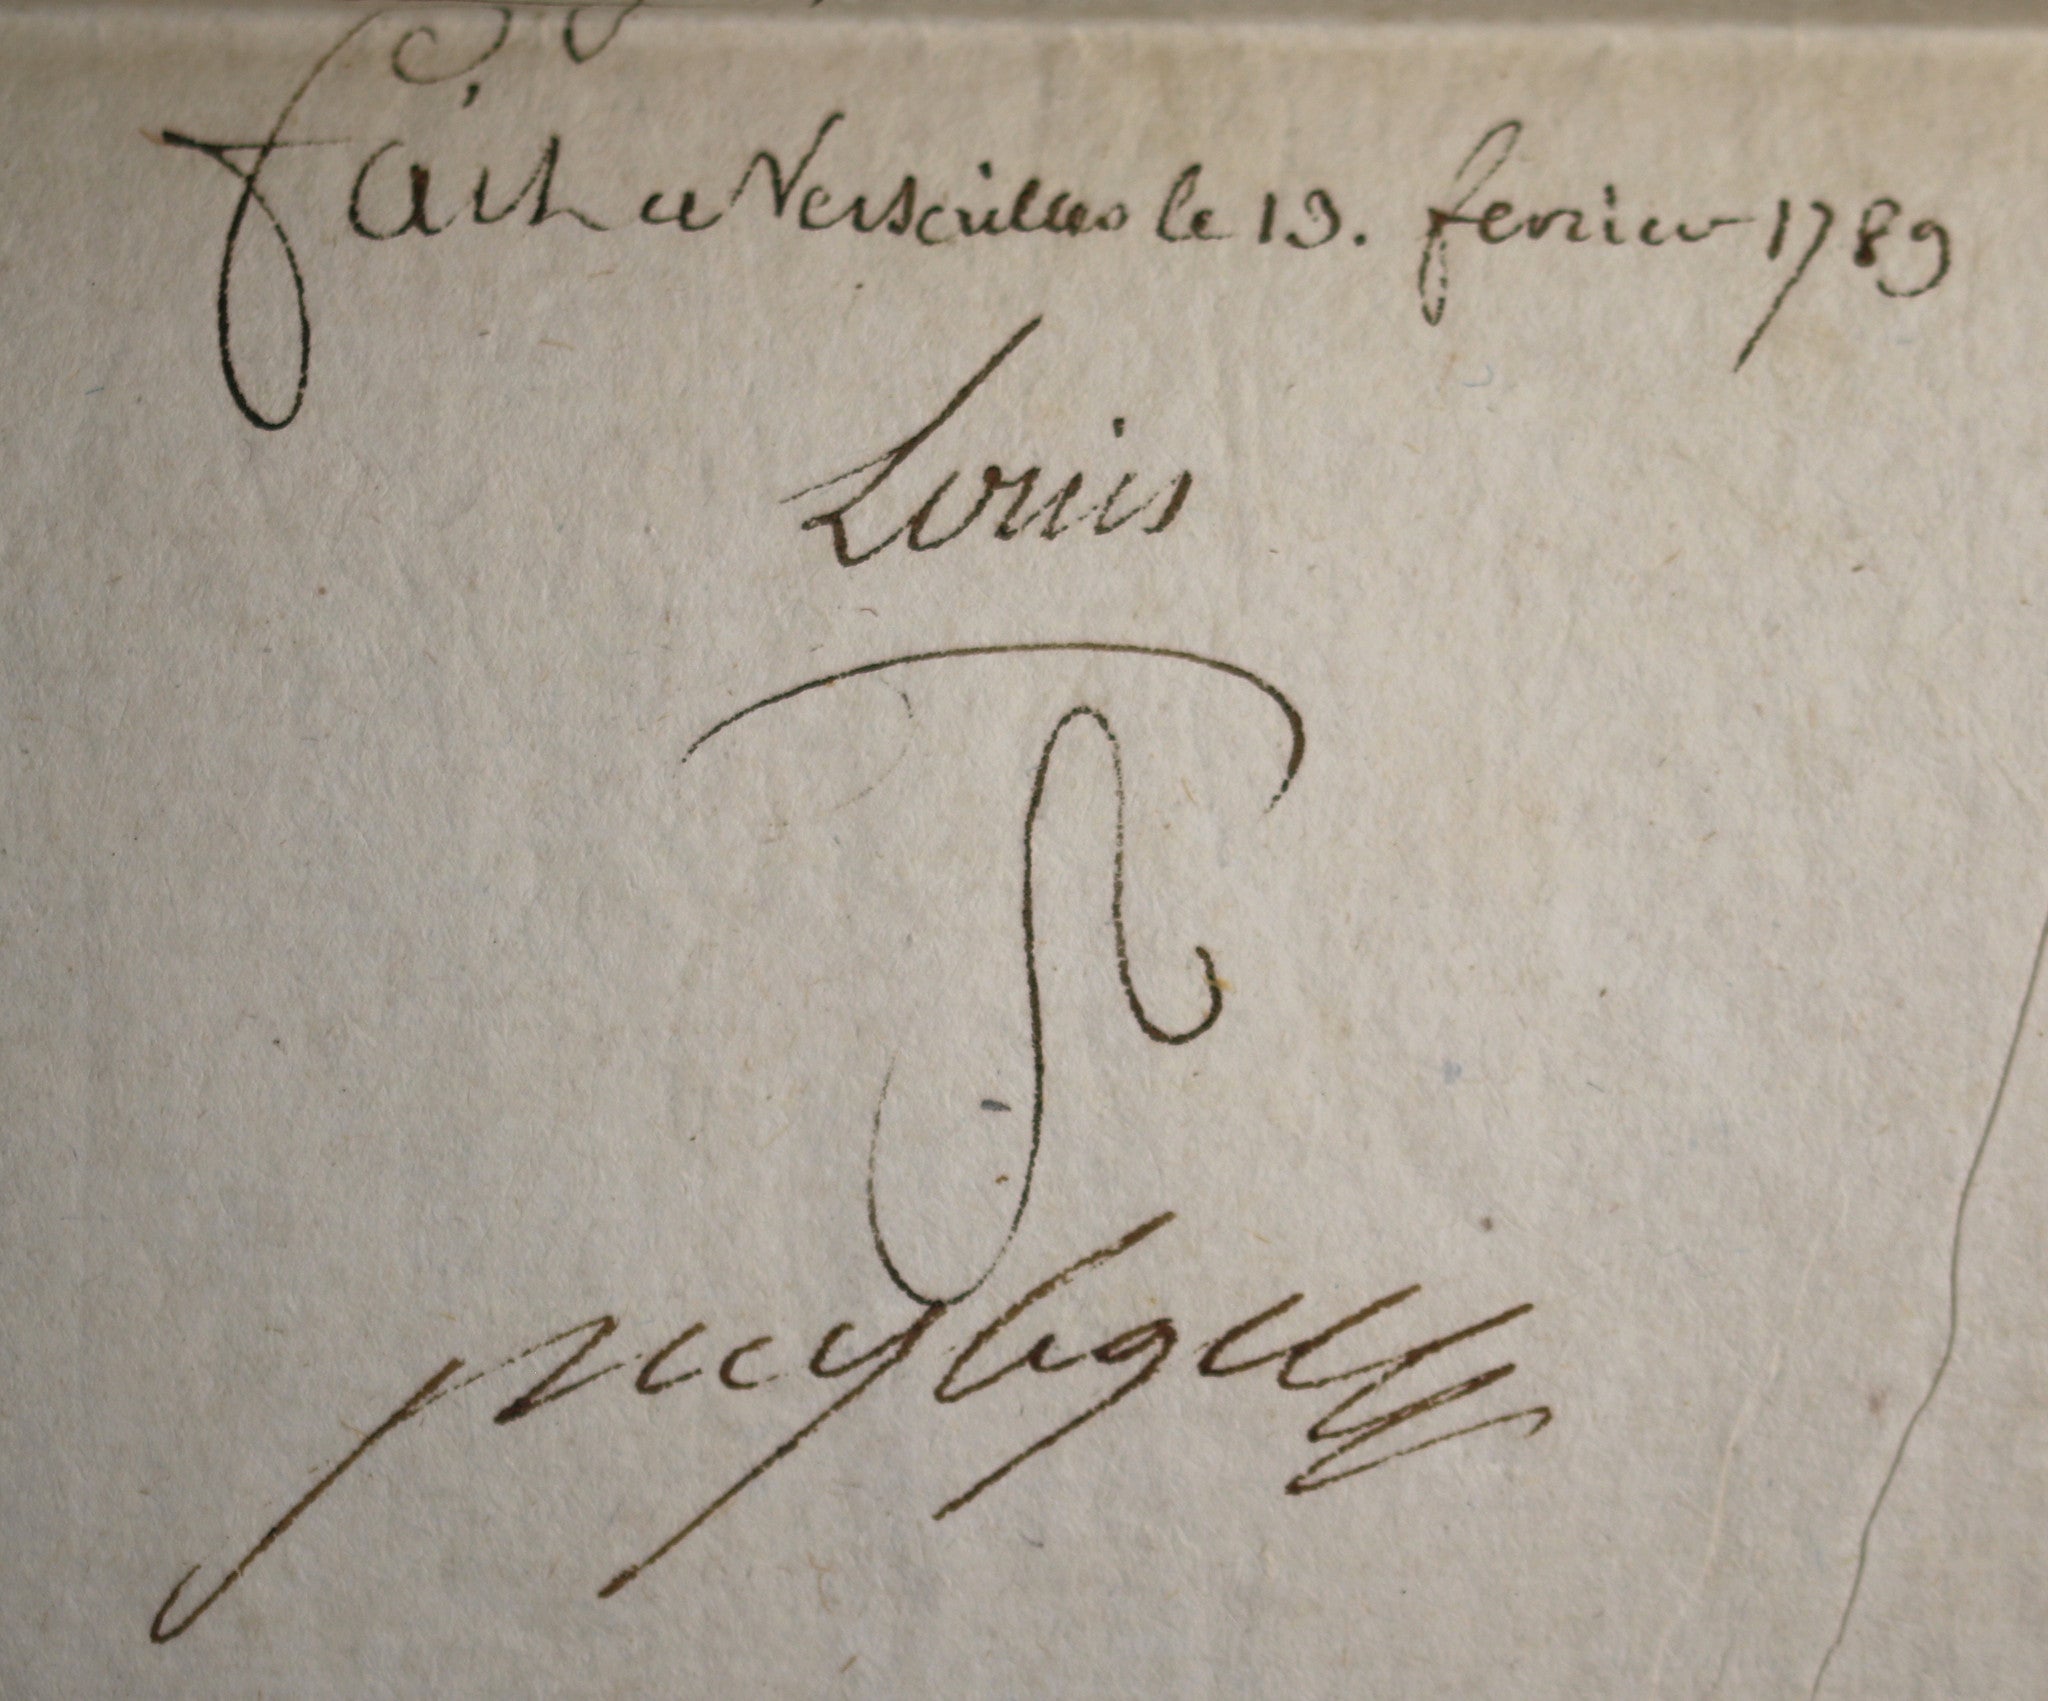 fait a Versailles le 13. fevrier 1789
Louis
puysegur